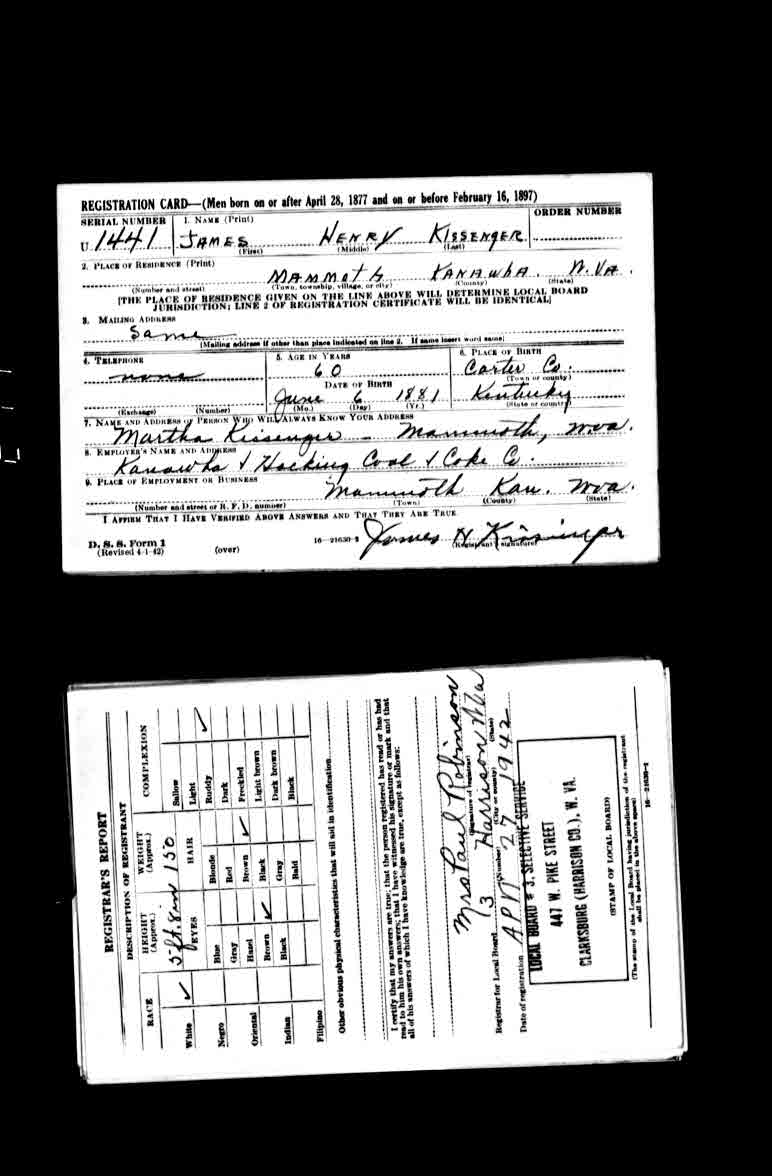 REGISTRATION CARD—(Men born on or after April 28, 1877 and on or before February 16, 1897)
SERIAL NUMBER 1. NAME (Print) ORDER NUMBER
U 1441 JAMES HENRY KISSENGER
(First) (Middle) (Last)
2. PLACE OF RESIDENCE (Print)
MAMMOTH KANAWHA. W. VA.
(Number and street) (Town, township, village, or city) (County) (State)
[THE PLACE OF RESIDENCE GIVEN ON THE LINE ABOVE WILL DETERMINE LOCAL BOARD
JURISDICTION; LINE 2 OF REGISTRATION CERTIFICATE WILL BE IDENTICAL]
3. MAILING ADDRESS
Same
[Mailing address if other than place indicated on line 2. If same insert word same]
4. TELEPHONE 5. AGE IN YEARS 6. PLACE OF BIRTH
none 60 Carter Co.
(Town or county)
DATE OF BIRTH
June 6 1881 Kentucky
(Exchange) (Number) (Mo.) (Day) (Yr.) (State or country)
7. NAME AND ADDRESS OF PERSON WHO WILL ALWAYS KNOW YOUR ADDRESS
Martha Kissenger - Mammoth, W.Va.
8. EMPLOYER'S NAME AND ADDRESS
Kanawha & Hocking Coal & Coke Co.
9. PLACE OF EMPLOYMENT OR BUSINESS
Mammoth Kan. W.Va.
(Number and street or R. F. D. number) (Town) (County) (State)
I AFFIRM THAT I HAVE VERIFIED ABOVE ANSWERS AND THAT THEY ARE TRUE.
D. S. S. Form 1
(Revised 4-1-42) (over) 16—21630-2 James H Kissinger
(Registrant's signature)
REGISTRAR'S REPORT
DESCRIPTION OF REGISTRANT
RACE HEIGHT (Approx.) WEIGHT (Approx.) COMPLEXION
5 ft. 8 in 150
White ✓ EYES HAIR Sallow
Light
Negro Blue Blonde Ruddy ✓
Gray Red Dark
Oriental Hazel Brown ✓ Freckled
Brown ✓ Black Light brown
Indian Black Gray Dark brown
Bald Black
Filipino
Other obvious physical characteristics that will aid in identification
I certify that my answers are true; that the person registered has read or has had
read to him his own answers; that I have witnessed his signature or mark and that
all of his answers of which I have knowledge are true, except as follows:
Mrs Paul Robinson
(Signature of registrar)
Registrar for Local Board 3 Harrison W.Va
(Number) (City or county) (State)
Date of registration Apr 27 1942
LOCAL BOARD # 3, SELECTIVE SERVICE
447 W. PIKE STREET
CLARKSBURG (HARRISON CO.), W. VA.
(STAMP OF LOCAL BOARD)
(The stamp of the Local Board having jurisdiction of the registrant
shall be placed in the above space)
16—21630-1